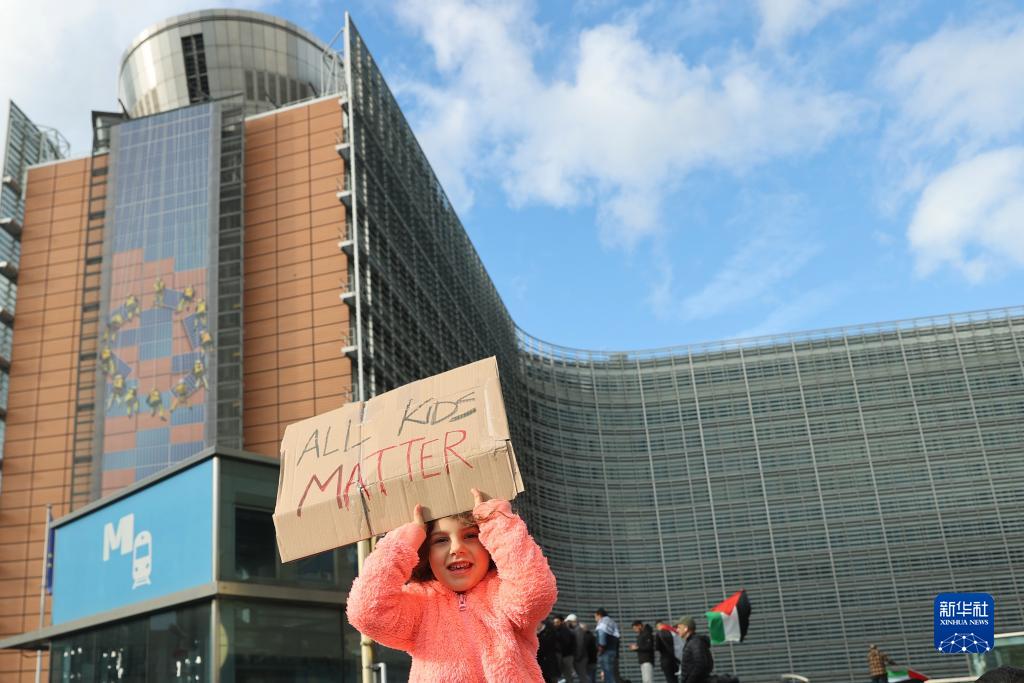 ALL KIDS
MATTER
M
新华社
XINHUA NEWS